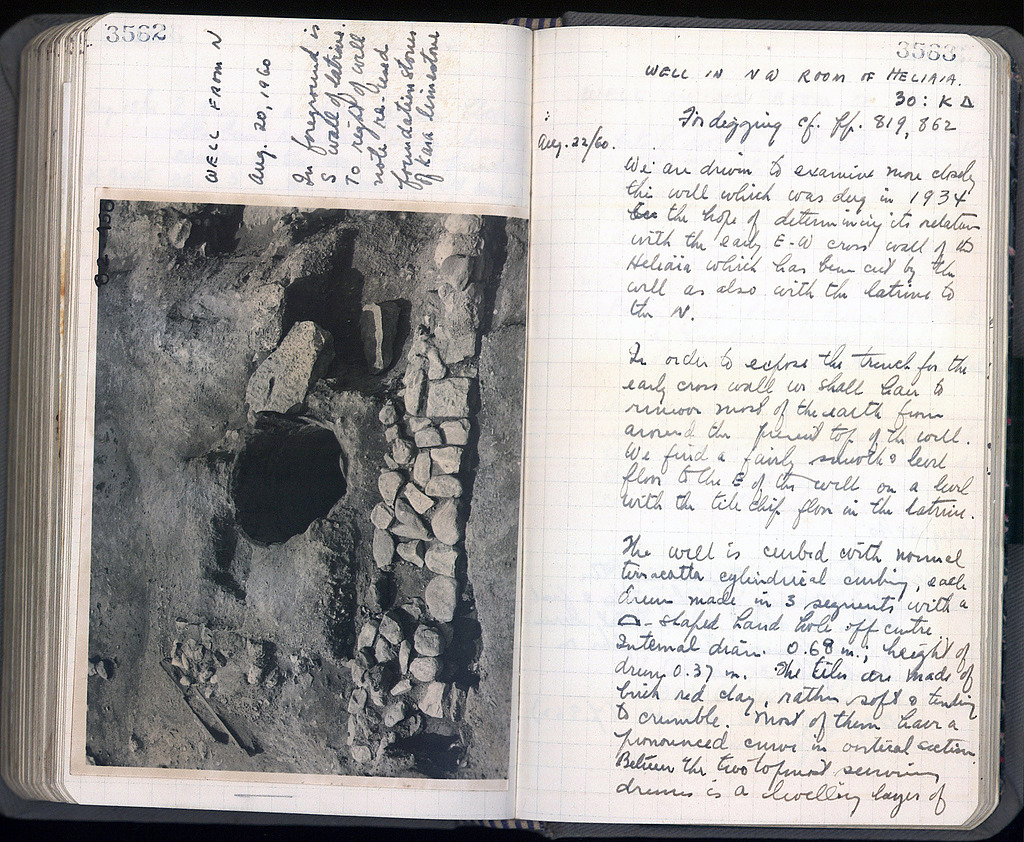 3562
WELL FROM N
Aug. 20, 1960
In foreground is
S wall of latrine.
To right of well
note re-used
foundation stones
of Kara limestone
3563
WELL IN NW ROOM OF HELIAIA.
30: ΚΔ
For digging cf. pp. 819, 862
Aug. 22/60.
We are driven to examine more closely
the well which was dug in 1934
the hope of determining its relation
with the early E-W cross wall of the
Heliaia which has been cut by the
well as also with the latrine to
the N.
In order to expose the trench for the
early cross wall we shall have to
remove most of the earth from
around the present top of the well.
We find a fairly smooth & level
floor to the E of the well on a level
with the tile chip floor in the latrine.
The well is curbed with normal
terracotta cylindrical curbing, each
drum made in 3 segments with a
Δ-shaped hand hole off centre.
Internal diam. 0.68 m.; height of
drum 0.37 m. The tiles are made of
brick red clay, rather soft & tending
to crumble. Most of them have a
pronounced curve in vertical section.
Between the two topmost surviving
drums is a levelling layer of